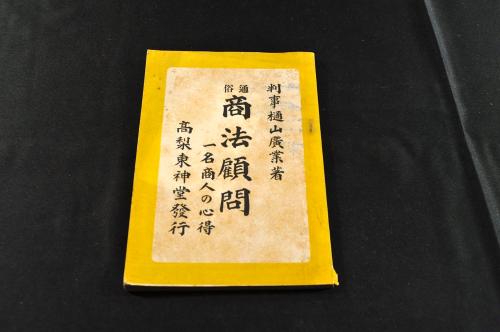 判事樋山廣業著
通俗
商法顧問
一名商人の心得
高梨東神堂發行